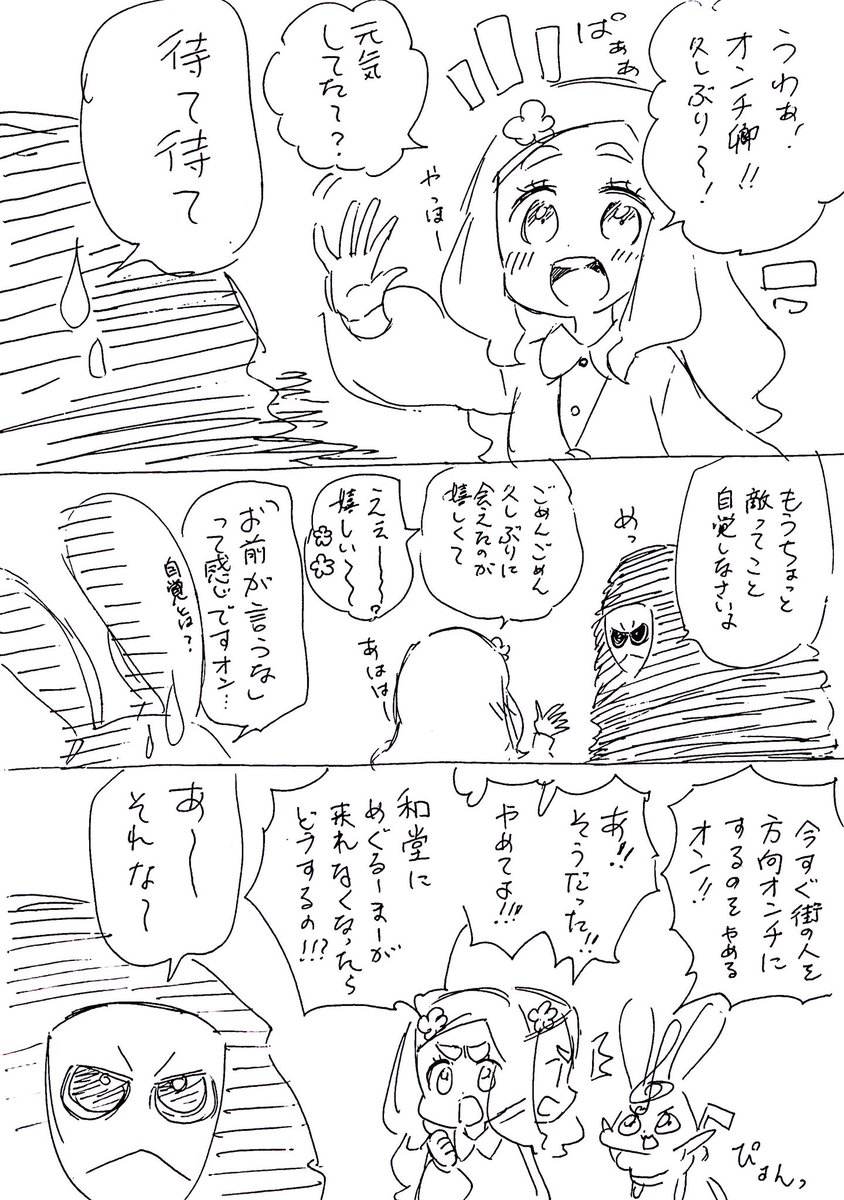 うわぁ！
オンチ卿！！
久しぶり〜！
ぱぁぁ
元気
してた〜？
やっほー
待て待て
もうちょっと
敵ってこと
自覚しなさいよ
めっ
ごめんごめん
久しぶりに
会えたのが
嬉しくて
ええーー？
嬉しい〜〜
あはは
「お前が言うな」
って感じですオン…
自覚とは？
今すぐ街の人を
方向オンチに
するのをやめる
オン！！
あ！！
そうだった！！
やめてよ！！！
和堂に
めぐるーまーが
来れなくなったら
どうするの！！？
ぴょんっ
あ〜〜
それな〜